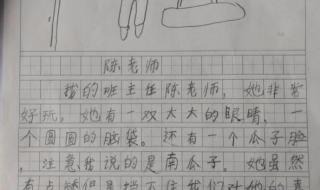 陈老师
我的班主任陈老师，她非常
好玩。她有一双大大的眼睛，一
个圆圆的脑袋。还有一个瓜子脸
，注意我说的是南瓜子。她虽然
有点矮但是挡不住我们对她的喜